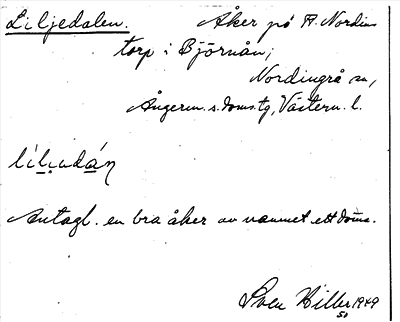 Liljedalen. Åker på A. Nordin-
torp i Björnån,
Nordingrå sn,
Ångerm. s. doms.tg, Västern. l.
liliudán
Antagl. en bra åker av namnet att döma.
Sven Hiller 1949